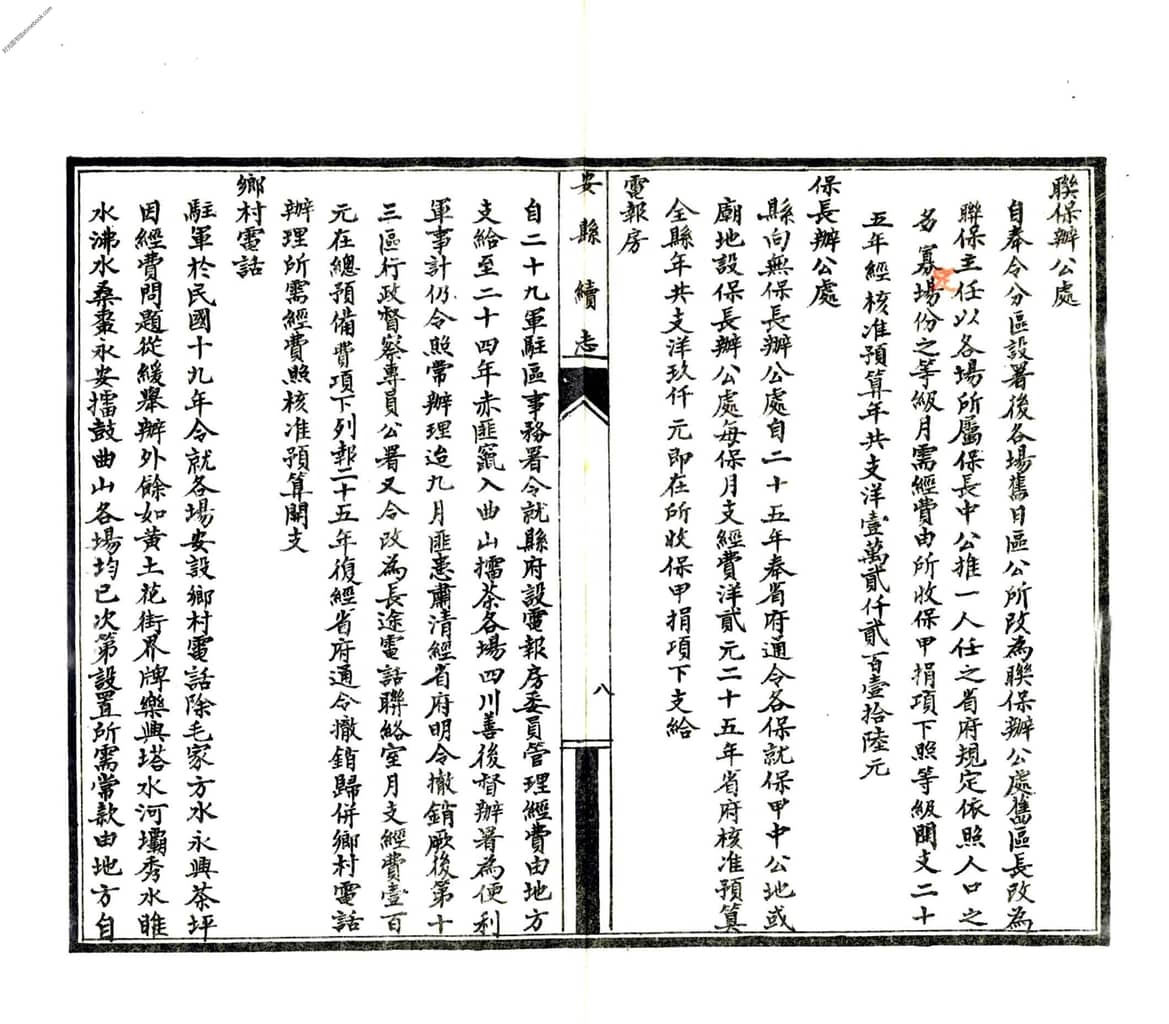 聯保辦公處
自奉令分區設署後各場舊日區公所改為聯保辦公處舊區長改為
聯保主任以各場所屬保長中公推一人任之省府規定依照人口之
名寡場份之等級月需經費由所收保甲捐項下照等級開支二十
五年經核准預算年共支洋壹萬貳仟貳百壹拾陸元
保長辦公處
縣向無保長辦公處自二十五年奉省府通令各保就保甲中公地或
廟地設保長辦公處每保月支經費洋貳元二十五年省府核准預算
全縣年共支洋玖仟元即在所收保甲捐項下支給
電報房
安縣續志
八
自二十九軍駐區事務署令就縣府設電報房委員管理經費由地方
支給至二十四年赤匪竄入曲山擂茶各場四川善後督辦署為便利
軍事計仍令照常辦理迨九月匪患肅清經省府明令撤銷厥後第十
三區行政督察專員公署又令改為長途電話聯絡室月支經費壹百
元在總預備費項下列報二十五年復經省府通令撤銷歸併鄉村電話
辦理所需經費照核准預算開支
鄉村電話
駐軍於民國十九年令就各場安設鄉村電話除毛家方水永興茶坪
因經費問題從緩舉辦外餘如黃土花街界牌樂興塔水河壩秀水睢
水沸水桑棗永安擂鼓曲山各場均已次第設置所需常款由地方自